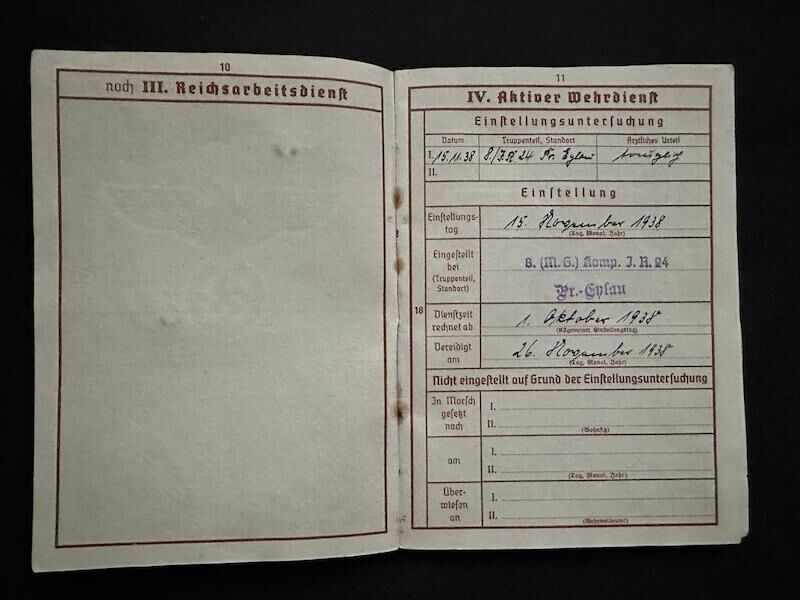 10
noch III. Reichsarbeitsdienst
11
IV. Aktiver Wehrdienst
Einstellungsuntersuchung
Datum Truppenteil, Standort Ärztliches Urteil
I. 15.11.38 8./I.R. 24 Pr. Eylau tauglich
II.
Einstellung
Einstellungs-
tag
15. November 1938
(Tag, Monat, Jahr)
Eingestellt
bei
(Truppenteil,
Standort)
8. (M. G.) Komp. I. R. 24
Pr.-Eylau
18
Dienstzeit
rechnet ab
1. Oktober 1938
(Allgemeiner Einstellungstag)
Vereidigt
am
26. November 1938
(Tag, Monat, Jahr)
Nicht eingestellt auf Grund der Einstellungsuntersuchung
In Marsch
gesetzt
nach
I.
II.
(Wohnsitz)
am
I.
II.
(Tag, Monat, Jahr)
Über-
wiesen
an
I.
II.
(Wehrmeldeamt)